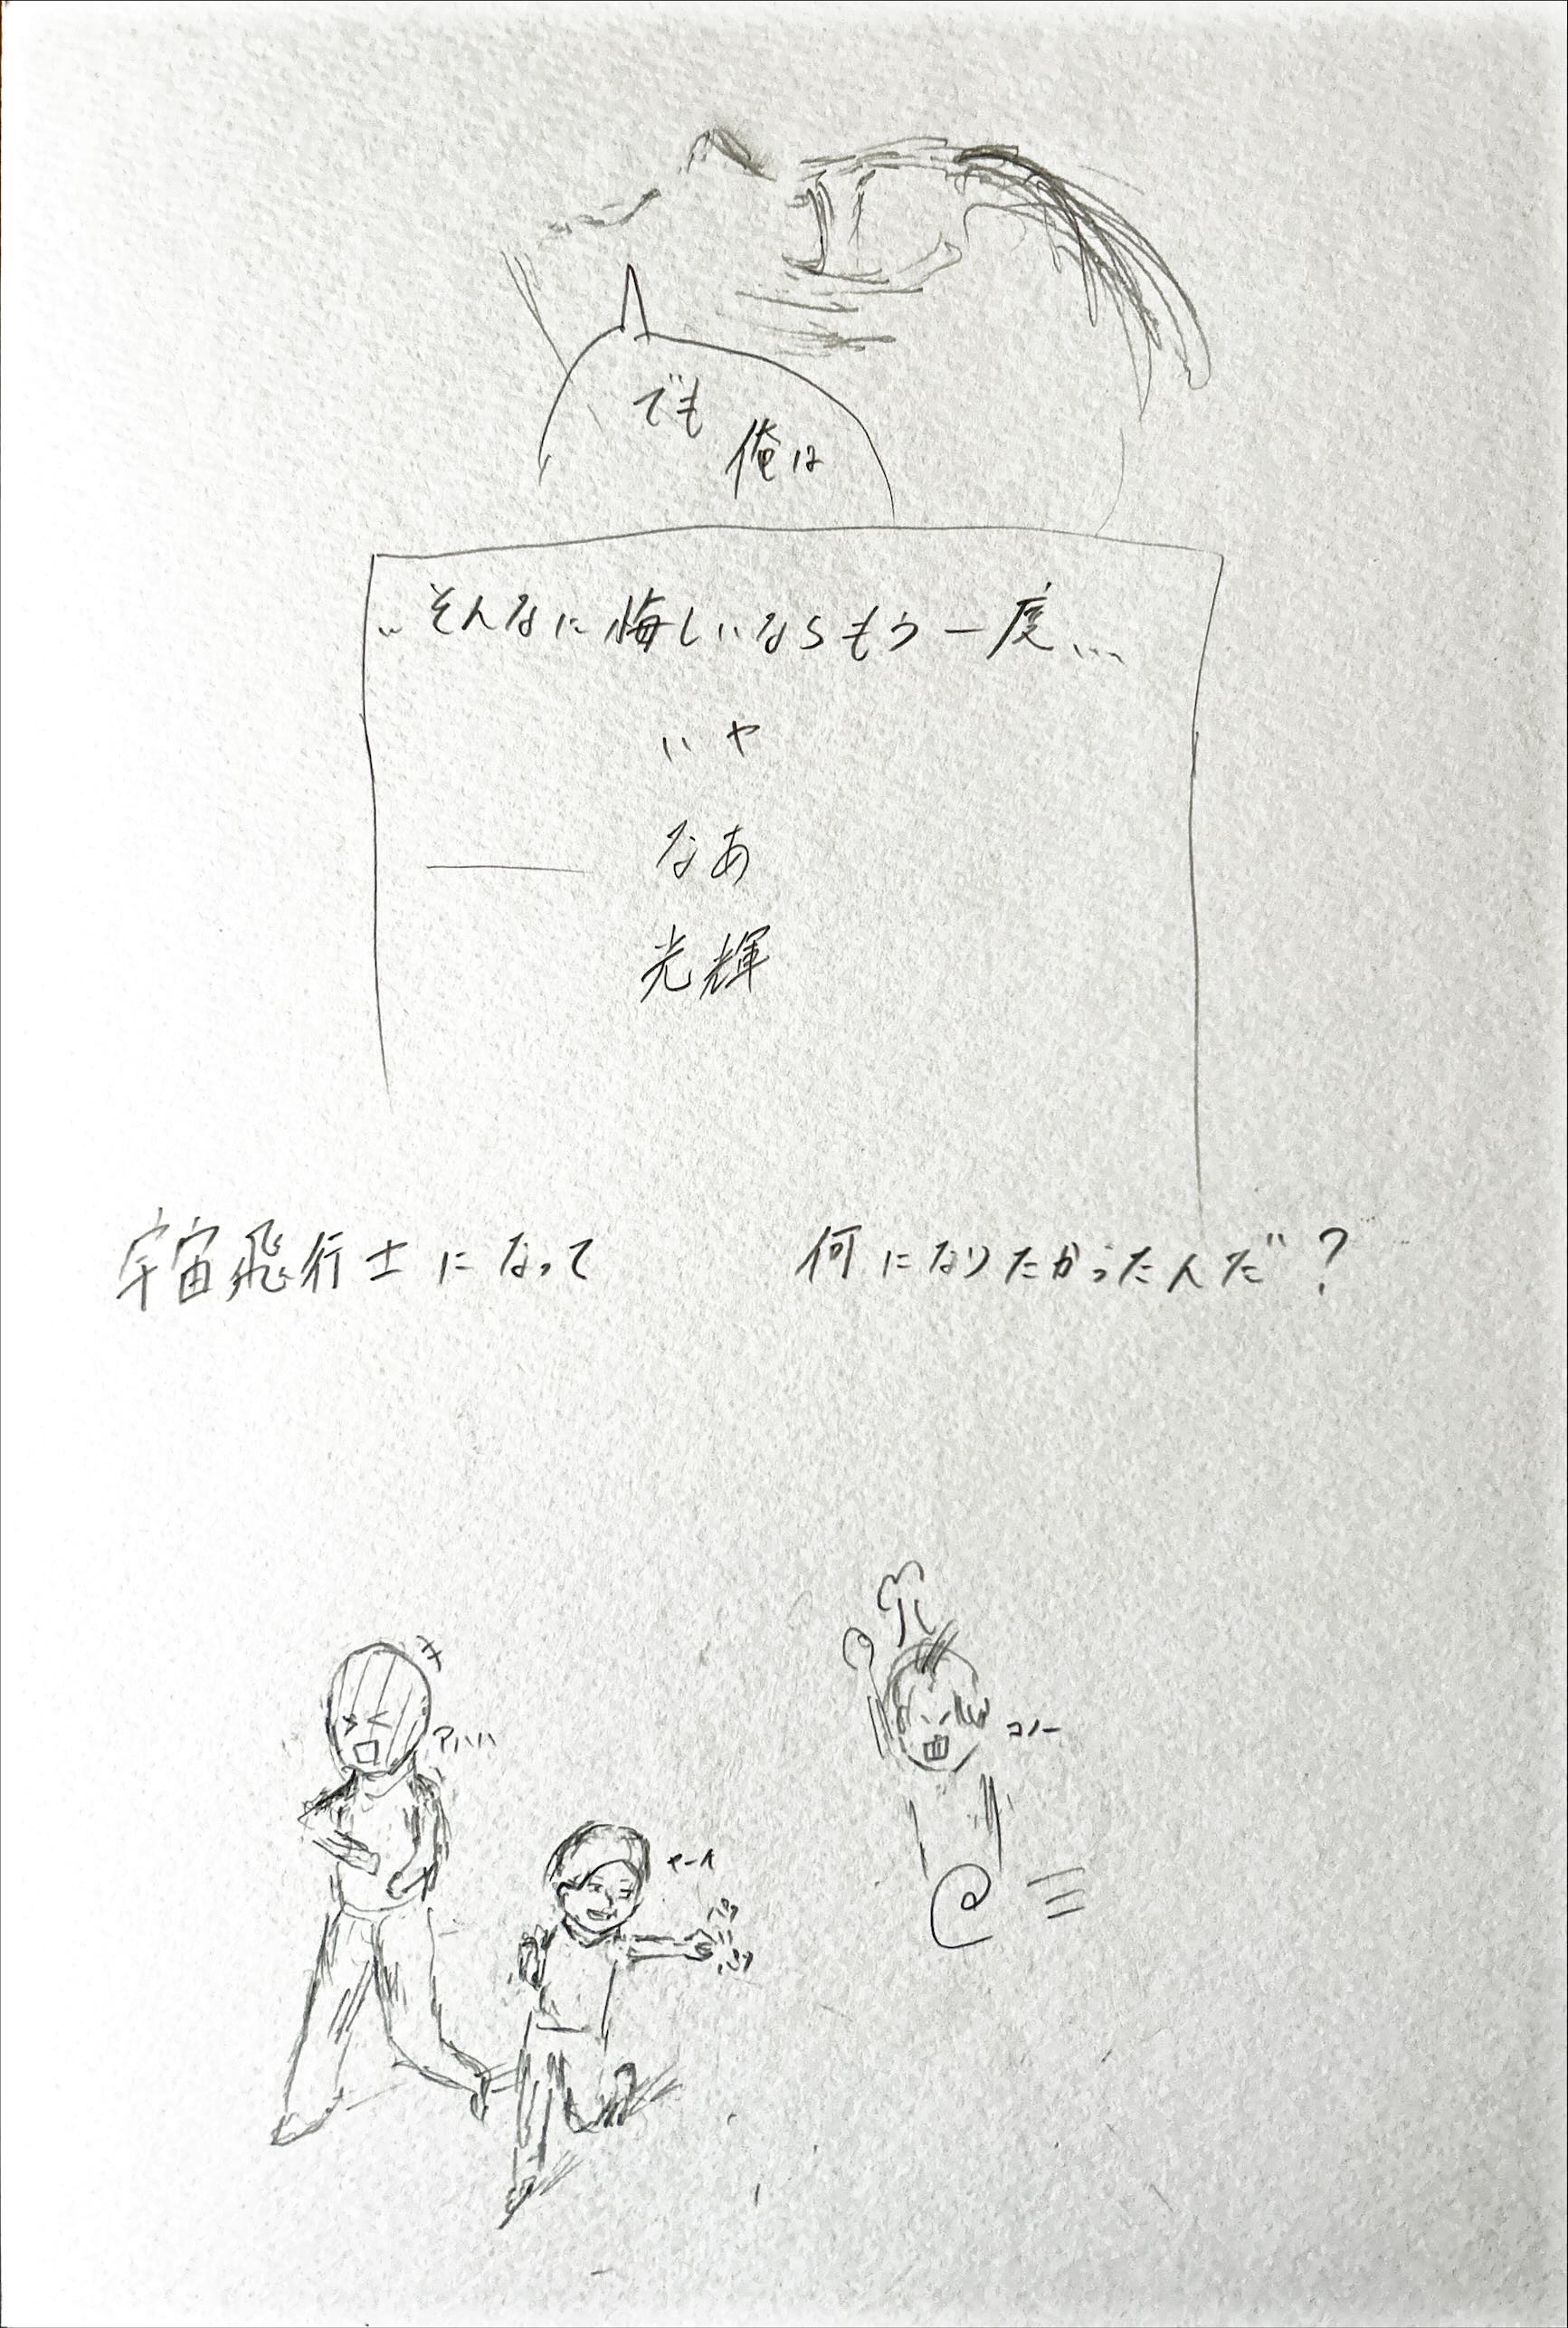 でも
俺は
..そんなに悔しいならもう一度...
いや
なあ
光輝
宇宙飛行士になって 何になりたかったんだ?
アハハ
コノー